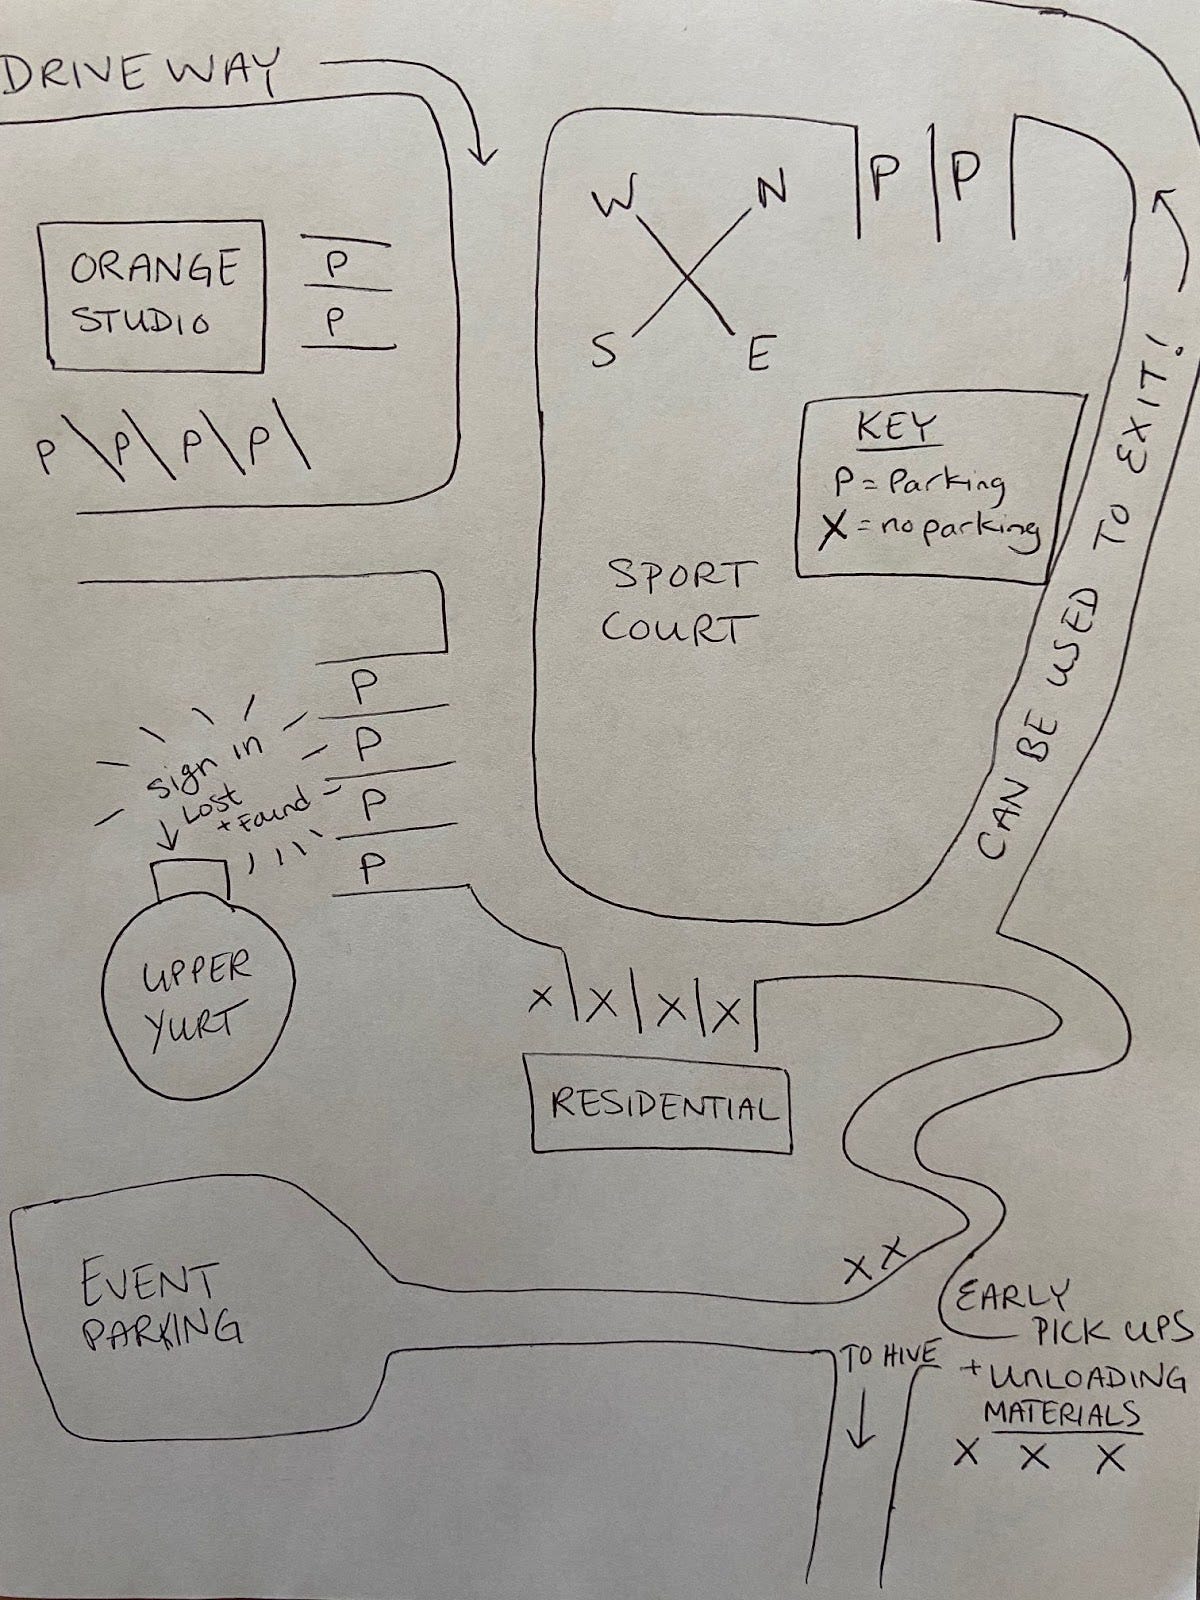 DRIVEWAY
P P
W N
S E
ORANGE
STUDIO
P
P
P P P P
KEY
P = Parking
X = no parking
CAN BE USED TO EXIT!
SPORT
COURT
P
P
P
P
Sign in
Lost
+ Found
UPPER
YURT
X X X X
RESIDENTIAL
X X
EVENT
PARKING
EARLY
PICK UPS
+ UNLOADING
MATERIALS
X X X
TO HIVE